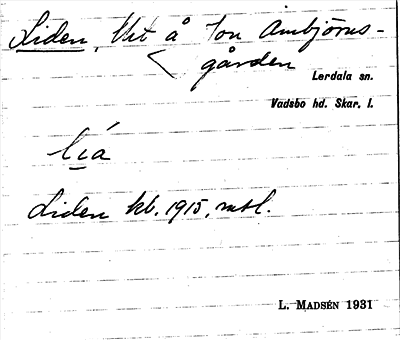 Liden, Utt å Jon Ambjörns-
gården
Lerdala sn.
Vadsbo hd. Skar. l.
lía
Liden kb. 1915, mtl.
L. Madsén 1931